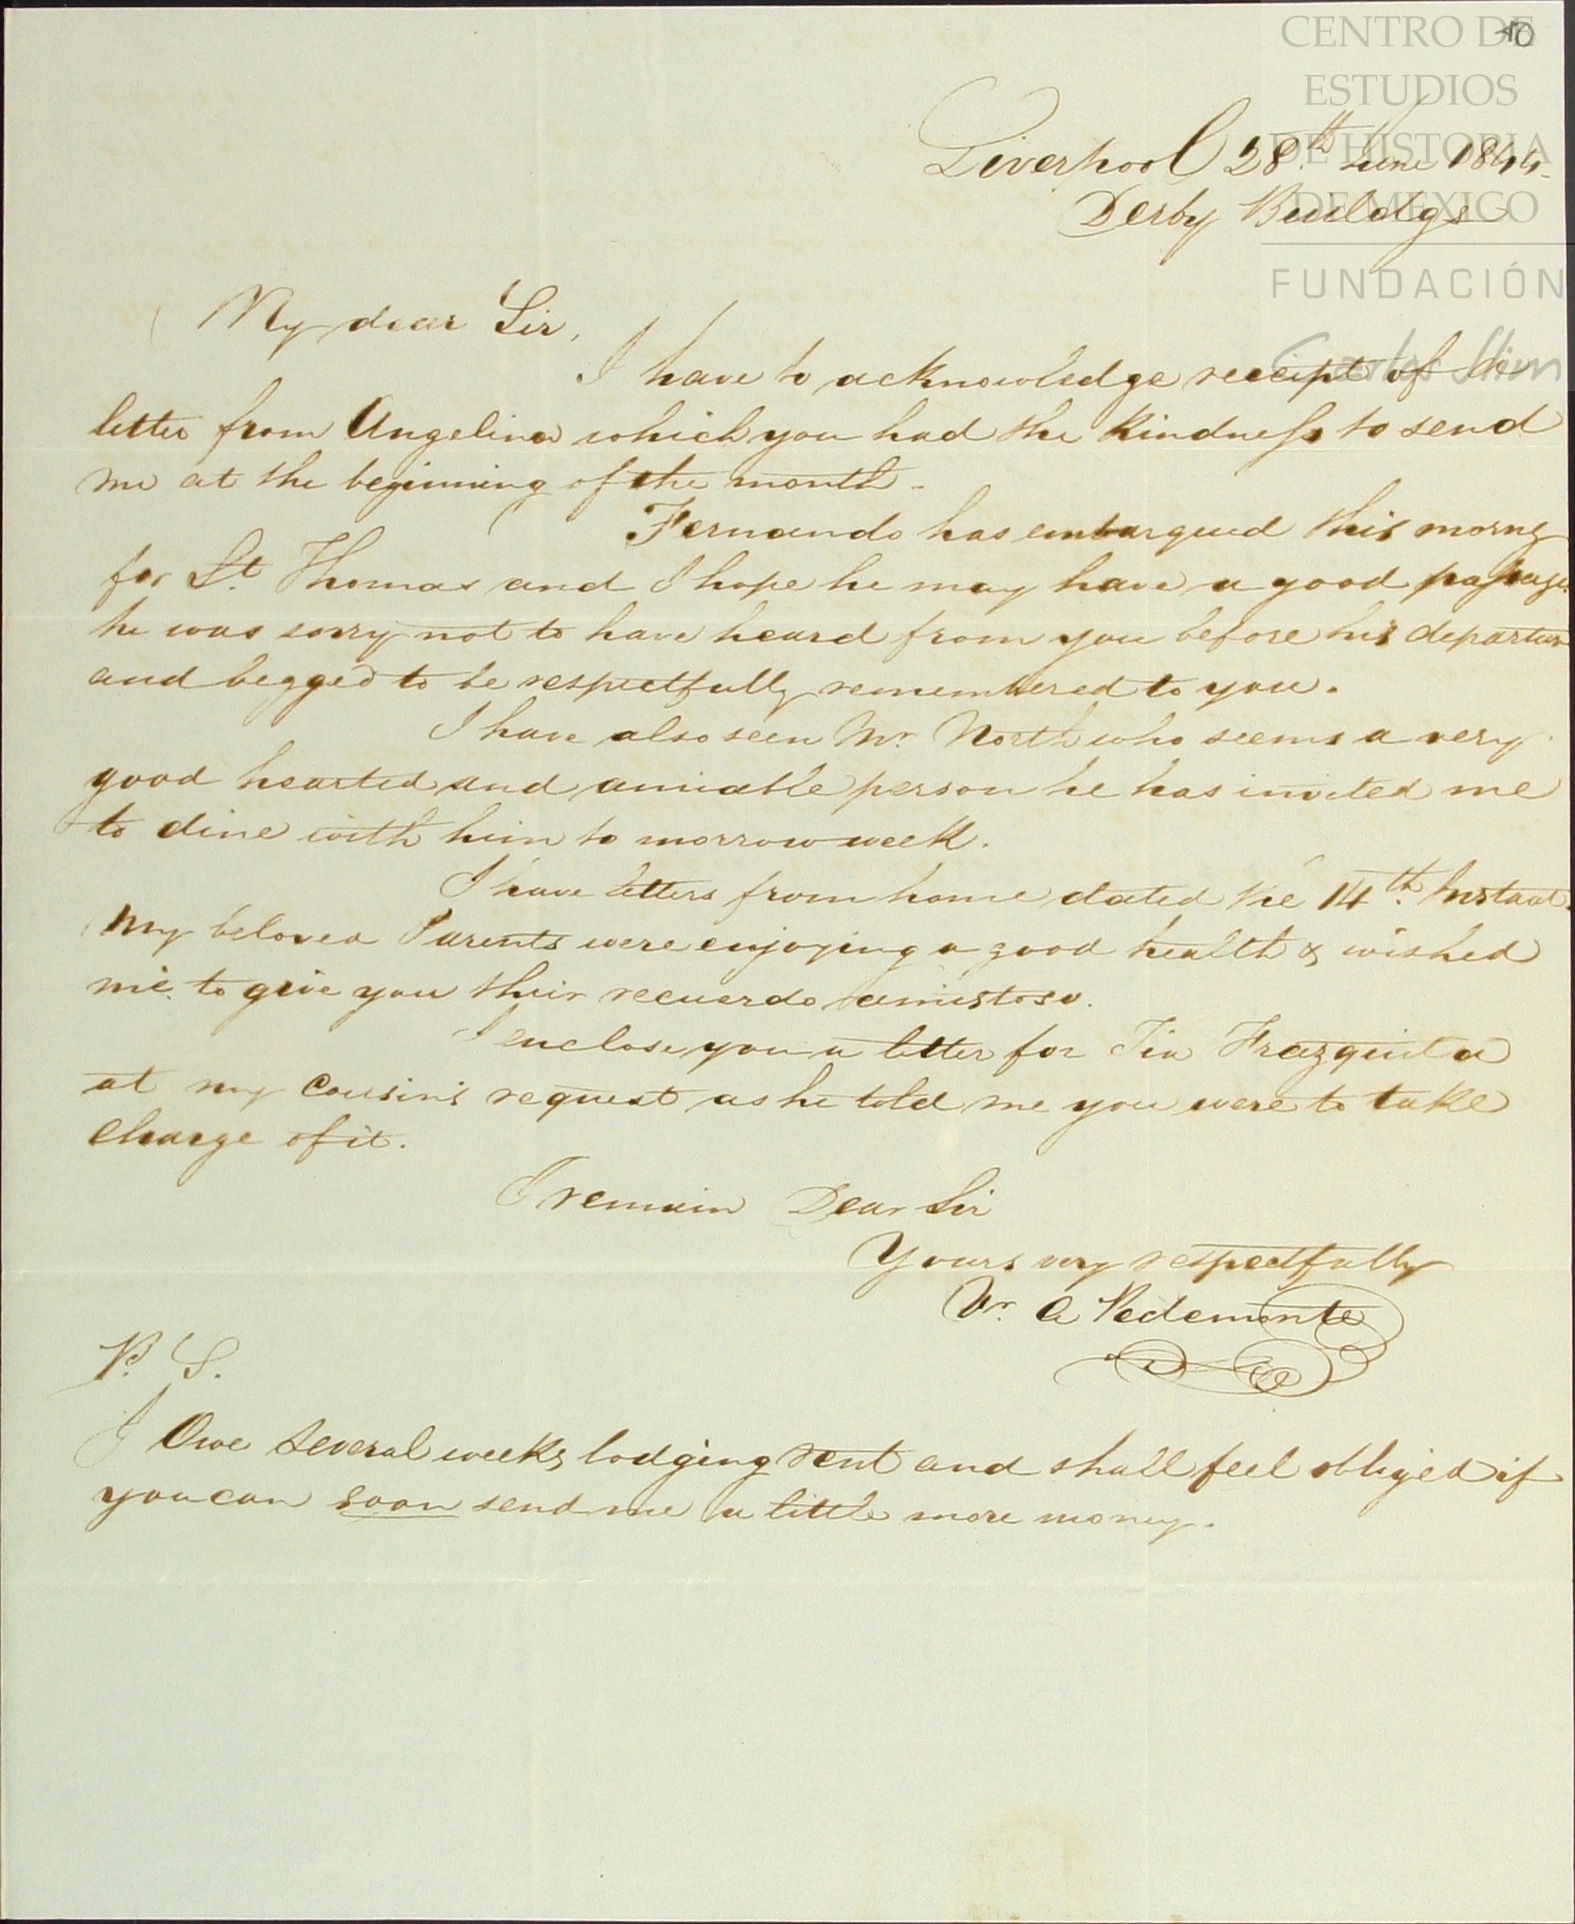 CENTRO DE
ESTUDIOS
DE HISTORIA
DE MEXICO
FUNDACIÓN
Carlos Slim
Liverpool 28th June 1844.
Derby Buildgs
My dear Sir,
I have to acknowledge receipt of a
letter from Angelina which you had the kindness to send
me at the beginning of the month.
Fernando has embarqued this morng
for St. Thomas and I hope he may have a good passage.
he was sorry not to have heard from you before his departure
and begged to be respectfully remembered to you.
I have also seen Mr. North who seems a very
good hearted and amiable person he has invited me
to dine with him to morrow week.
I have letters from home dated the 14th Instant.
My beloved Parents were enjoying a good health & wished
me to give you their recuerdo amistoso.
I enclose you a letter for Tia Frazquita
at my Cousin's request as he told me you were to take
charge of it.
I remain Dear Sir
Yours very respectfully
Vr. A Pedemonte
P. S.
I Owe several weeks lodging rent and shall feel obliged if
you can soon send me a little more money.